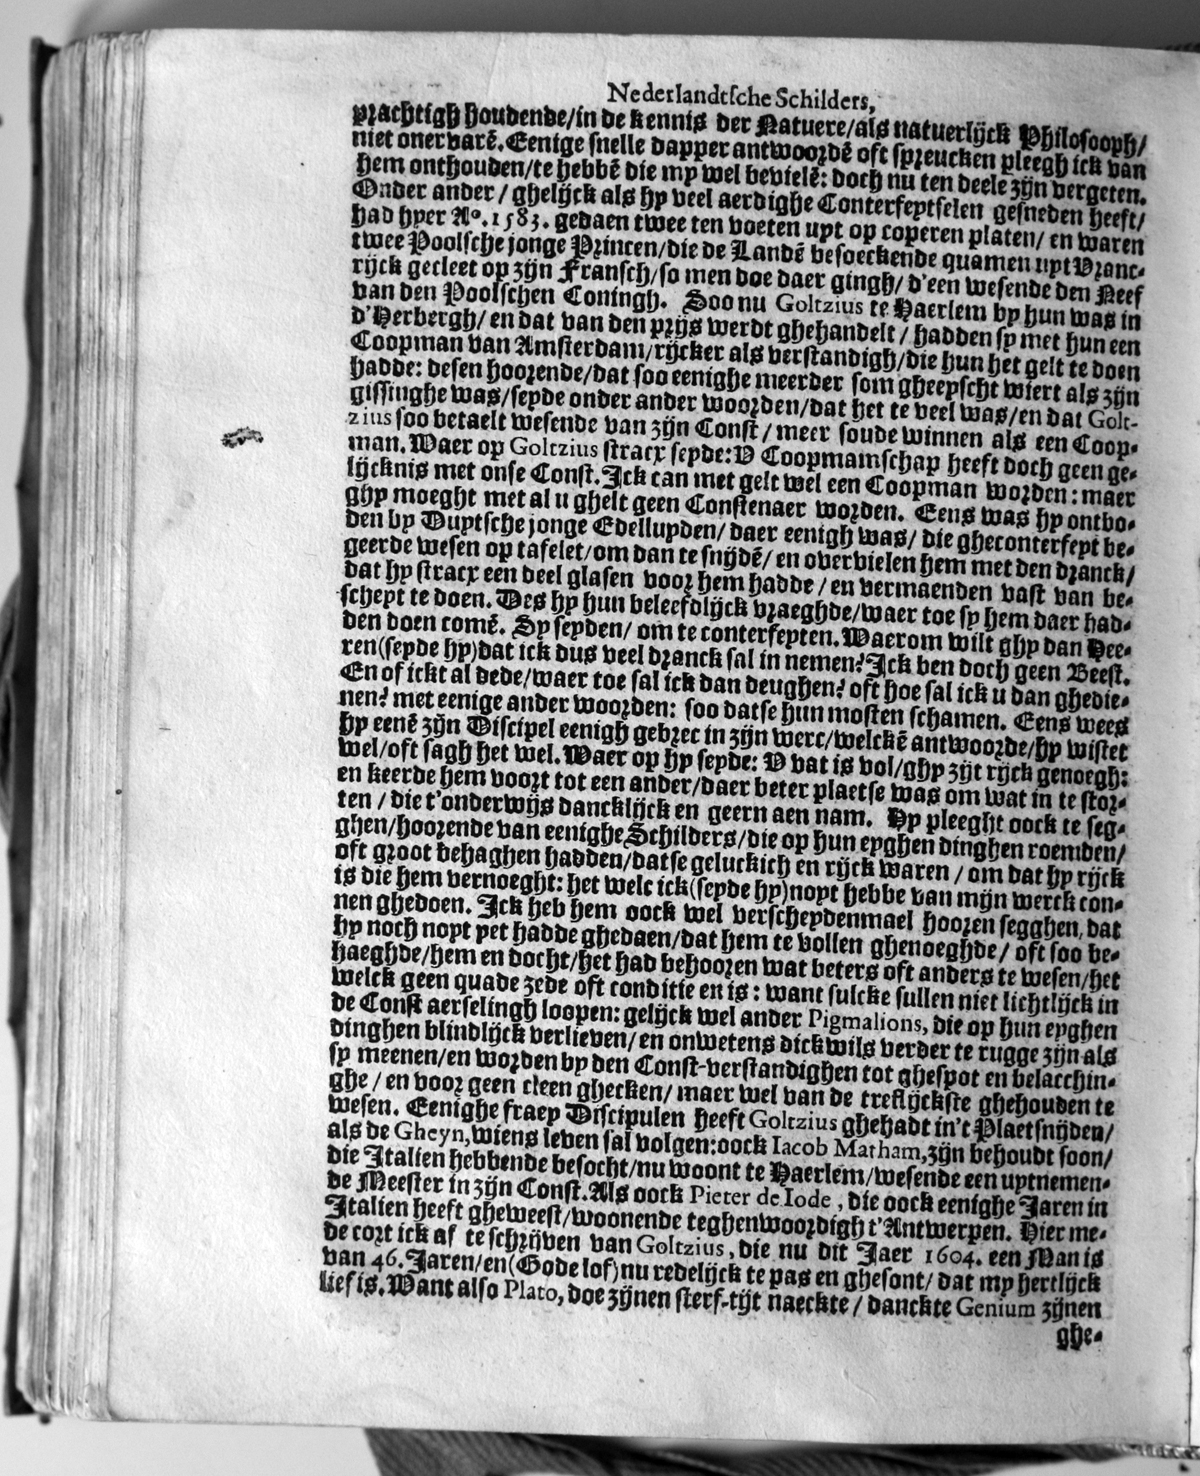 Nederlandtsche Schilders,
prachtigh houdende/in de kennis der Natuere/als natuerlijck Philosooph/
niet onervarē. Eenige snelle dapper antwoordē oft spreucken pleegh ick van
hem onthouden/te hebbē die my wel bevielē: doch nu ten deele zijn vergeten.
Onder ander / ghelijck als hy veel aerdighe Conterfeytselen gesneden heeft/
had hyer Aº. 1583. gedaen twee ten voeten uyt op coperen platen/ en waren
twee Poolsche jonge Princen/die de Landē besoeckende quamen uyt Vranc-
rijck gecleet op zijn Fransch/so men doe daer gingh/ d'een wesende den Neef
van den Poolschen Coningh. Soo nu Goltzius te Haerlem by hun was in
d'Herbergh/ en dat van den prijs werdt ghehandelt / hadden sy met hun een
Coopman van Amsterdam/rijcker als verstandigh/die hun het gelt te doen
hadde: desen hoorende/dat soo eenighe meerder som gheeyscht wiert als zijn
gissinghe was/seyde onder ander woorden/dat het te veel was/en dat Golt-
zius soo betaelt wesende van zijn Const / meer soude winnen als een Coop-
man. Waer op Goltzius stracx seyde: V Coopmanschap heeft doch geen ge-
lijcknis met onse Const. Ick can met gelt wel een Coopman worden: maer
ghy moeght met al u ghelt geen Constenaer worden. Eens was hy ontbo-
den by Duytsche jonge Edelluyden/ daer eenigh was/ die gheconterfeyt be-
geerde wesen op tafelet/om dan te snijdē/ en overvielen hem met den dranck/
dat hy stracx een deel glasen voor hem hadde / en vermaenden vast van be-
scheyt te doen. Des hy hun beleefdlijck vraeghde/waer toe sy hem daer had-
den doen comē. Sy seyden/ om te conterfeyten. Waerom wilt ghy dan Hee-
ren(seyde hy)dat ick dus veel dranck sal in nemen? Ick ben doch geen Beest.
En of ickt al dede/waer toe sal ick dan deughen? oft hoe sal ick u dan ghedie-
nen? met eenige ander woorden: soo datse hun mosten schamen. Eens wees
hy eenē zijn Discipel eenigh gebrec in zijn werc/welckē antwoorde/hy wistet
wel/oft sagh het wel. Waer op hy seyde: V vat is vol/ghy zijt rijck genoegh:
en keerde hem voort tot een ander/daer beter plaetse was om wat in te stor-
ten / die t'onderwijs dancklijck en geern aen nam. Hy pleeght oock te seg-
ghen/hoorende van eenighe Schilders/die op hun eyghen dinghen roemden/
oft groot behaghen hadden/datse geluckich en rijck waren / om dat hy rijck
is die hem vernoeght: het welc ick(seyde hy)noyt hebbe van mijn werck con-
nen ghedoen. Ick heb hem oock wel verscheydenmael hooren segghen, dat
hy noch noyt yet hadde ghedaen/dat hem te vollen ghenoeghde/ oft soo be-
haeghde/hem en docht/het had behooren wat beters oft anders te wesen/het
welck geen quade zede oft conditie en is : want sulcke sullen niet lichtlijck in
de Const aerselingh loopen: gelijck wel ander Pigmalions, die op hun eyghen
dinghen blindlijck verlieven/ en onwetens dickwils verder te rugge zijn als
sy meenen/en worden by den Const-verstandighen tot ghespot en belacchin-
ghe / en voor geen cleen ghecken/ maer wel van de treflijckste ghehouden te
wesen. Eenighe fraey Discipulen heeft Goltzius ghehadt in't Plaetsnijden/
als de Gheyn, wiens leven sal volgen: oock Iacob Matham, zijn behoudt soon/
die Italien hebbende besocht/nu woont te Haerlem/wesende een uytnemen-
de Meester in zijn Const. Als oock Pieter de Iode , die oock eenighe Jaren in
Italien heeft gheweest/woonende teghenwoordigh t'Antwerpen. Hier me-
de cort ick af te schrijven van Goltzius, die nu dit Jaer 1604. een Man is
van 46. Jaren/en(Gode lof)nu redelijck te pas en ghesont/ dat my hertlijck
lief is. Want also Plato, doe zijnen sterf-tijt naeckte / danckte Genium zijnen
ghe-